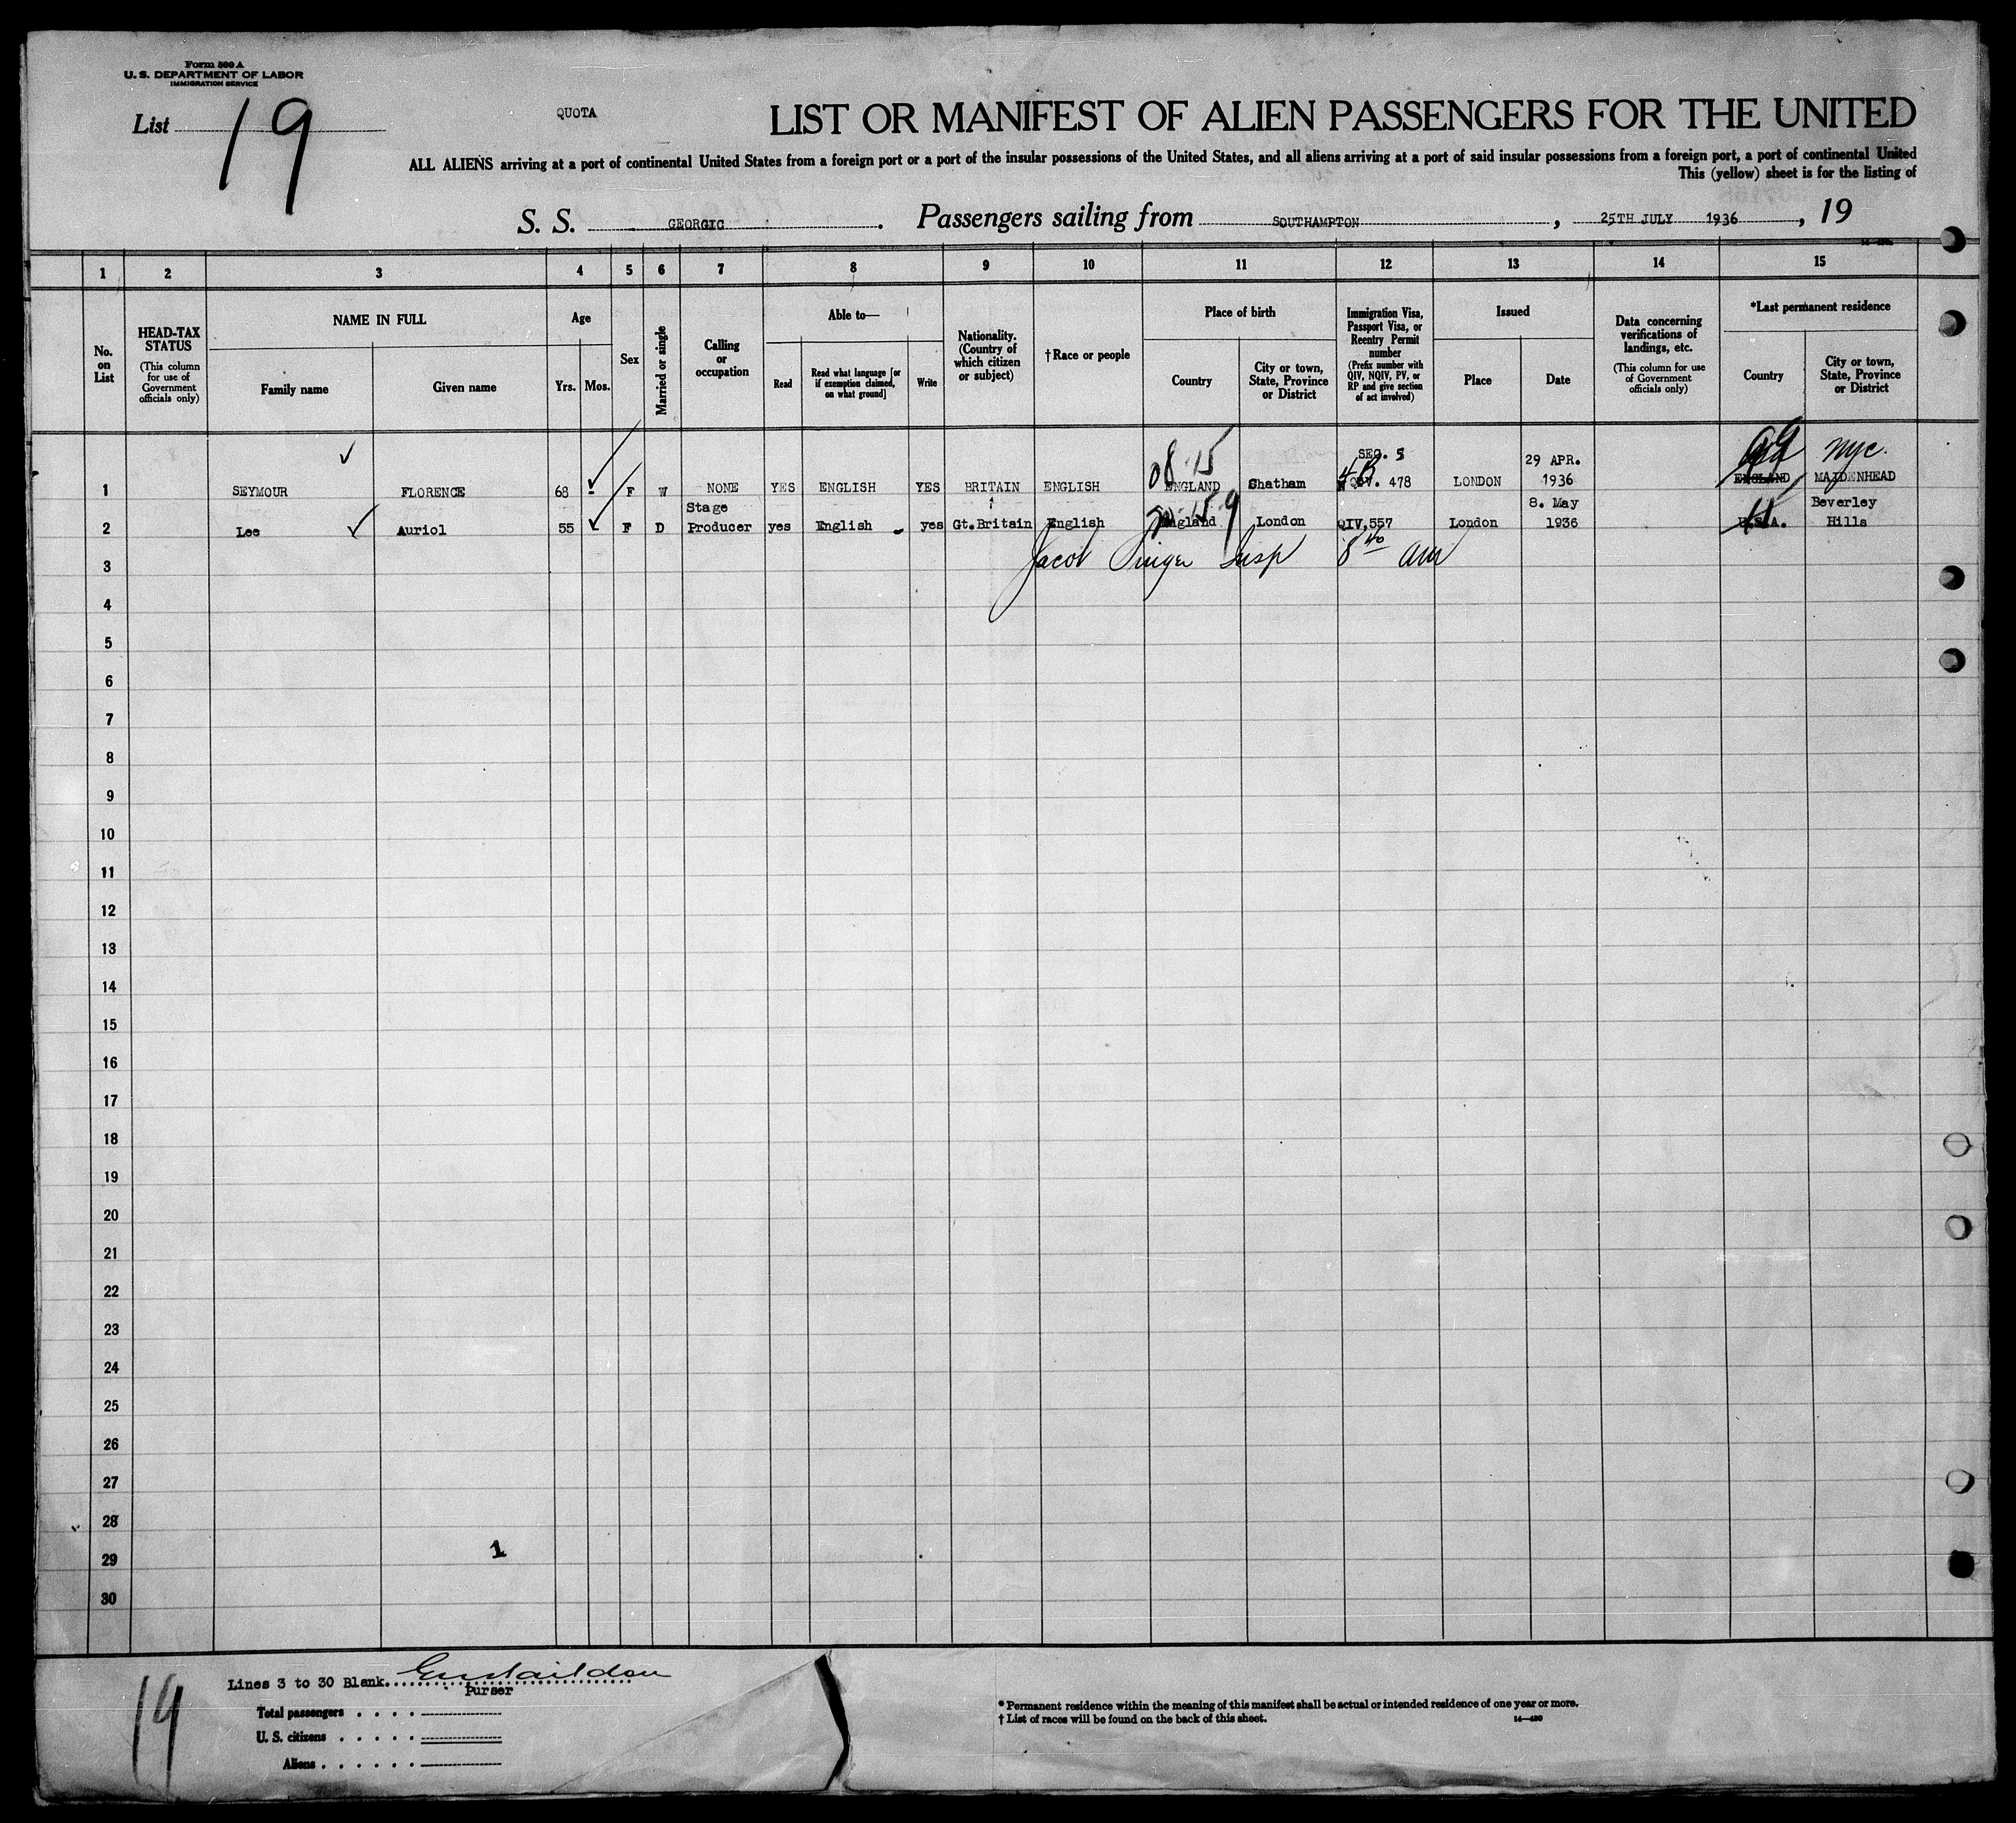 Form 500 A
U. S. DEPARTMENT OF LABOR
IMMIGRATION SERVICE
List 19
QUOTA
LIST OR MANIFEST OF ALIEN PASSENGERS FOR THE UNITED
ALL ALIENS arriving at a port of continental United States from a foreign port or a port of the insular possessions of the United States, and all aliens arriving at a port of said insular possessions from a foreign port, a port of continental United
This (yellow) sheet is for the listing of
S. S. GEORGIC. Passengers sailing from SOUTHAMPTON, 25TH JULY 1936, 19
1 2 3 4 5 6 7 8 9 10 11 12 13 14 15
No. on List
HEAD-TAX STATUS
(This column for use of Government officials only)
NAME IN FULL
Family name
Given name
Age
Yrs.
Mos.
Sex
Married or single
Calling or occupation
Able to—
Read
Read what language [or if exemption claimed, on what ground]
Write
Nationality. (Country of which citizen or subject)
† Race or people
Place of birth
Country
City or town, State, Province or District
Immigration Visa, Passport Visa, or Reentry Permit number
(Prefix number with QIV, NQIV, PV, or RP and give section of act involved)
Issued
Place
Date
Data concerning verifications of landings, etc.
(This column for use of Government officials only)
*Last permanent residence
Country
City or town, State, Province or District
08-15
SEC. 3
29 APR.
99 nyc.
1 SEYMOUR FLORENCE 68 - F W NONE YES ENGLISH YES BRITAIN ENGLISH ENGLAND Chatham QIV. 478 LONDON 1936 ENGLAND MAIDENHEAD
Stage
8. May
Beverley
2 Lee Auriol 55 F D Producer yes English yes Gt.Britain English England London QIV.557 London 1936 U.S.A. Hills
3 Jacob Singer Insp 8 40 am
4
5
6
7
8
9
10
11
12
13
14
15
16
17
18
19
20
21
22
23
24
25
26
27
28
29
1
30
19
Lines 3 to 30 Blank.
Purser
Total passengers
U. S. citizens
Aliens
* Permanent residence within the meaning of this manifest shall be actual or intended residence of one year or more.
† List of races will be found on the back of this sheet.